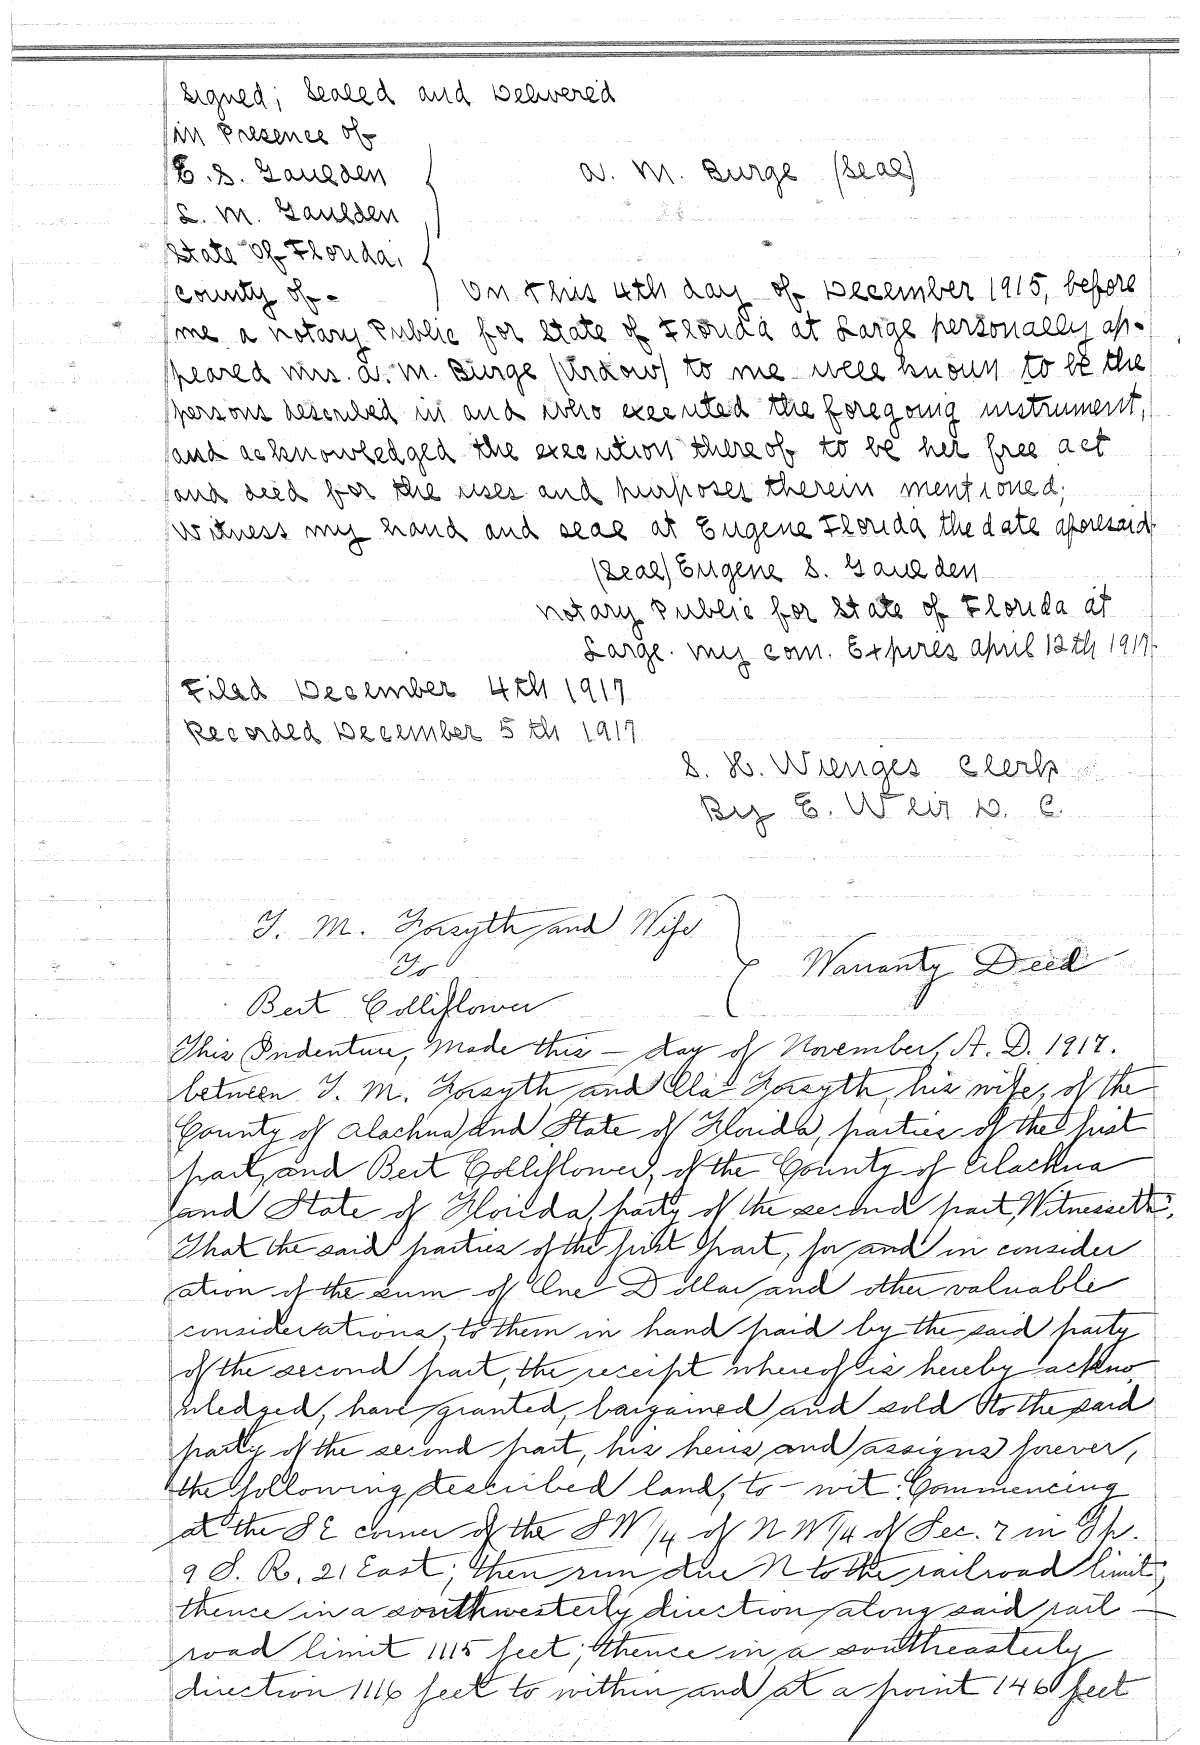 Signed; Sealed and Delivered
in Presence of
E. S. Gaulden
L. M. Gaulden
A. M. Burge (Seal)
State Of Florida,
County of-
On this 4th day of December 1915, before
me a Notary Public for State of Florida at Large personally ap-
peared Mrs. A. M. Burge (Widow) to me well known to be the
persons described in and who executed the foregoing instrument,
and acknowledged the execution thereof to be her free act
and deed for the uses and purposes therein mentioned;
Witness my hand and seal at Eugene Florida the date aforesaid
(Seal) Eugene S. Gaulden
Notary Public for State of Florida at
Large. My com. Expires April 12th 1917
Filed December 4th 1917
Recorded December 5th 1917
S. H. Wienges Clerk
By E. Weir D. C.
T. M. Forsyth and Wife
To
Bert Colliflower
Warranty Deed
This Indenture, Made this — day of November, A. D. 1917.
between T. M. Forsyth and Ola Forsyth, his wife, of the
County of Alachua and State of Florida, parties of the first
part, and Bert Colliflower, of the County of Alachua
and State of Florida, party of the second part, Witnesseth:
That the said parties of the first part, for and in consider
ation of the sum of One Dollar and other valuable
considerations, to them in hand paid by the said party
of the second part, the receipt whereof is hereby ackno
wledged, have granted, bargained and sold to the said
party of the second part, his heirs and assigns forever,
the following described land, to-wit: Commencing
at the SE corner of the SW 1/4 of NW 1/4 of Sec. 7 in Tp.
9 S. R. 21 East; then run due N to the railroad limit;
thence in a southwesterly direction along said rail—
road limit 1115 feet; thence in a southeasterly
direction 1116 feet to within and at a point 146 feet